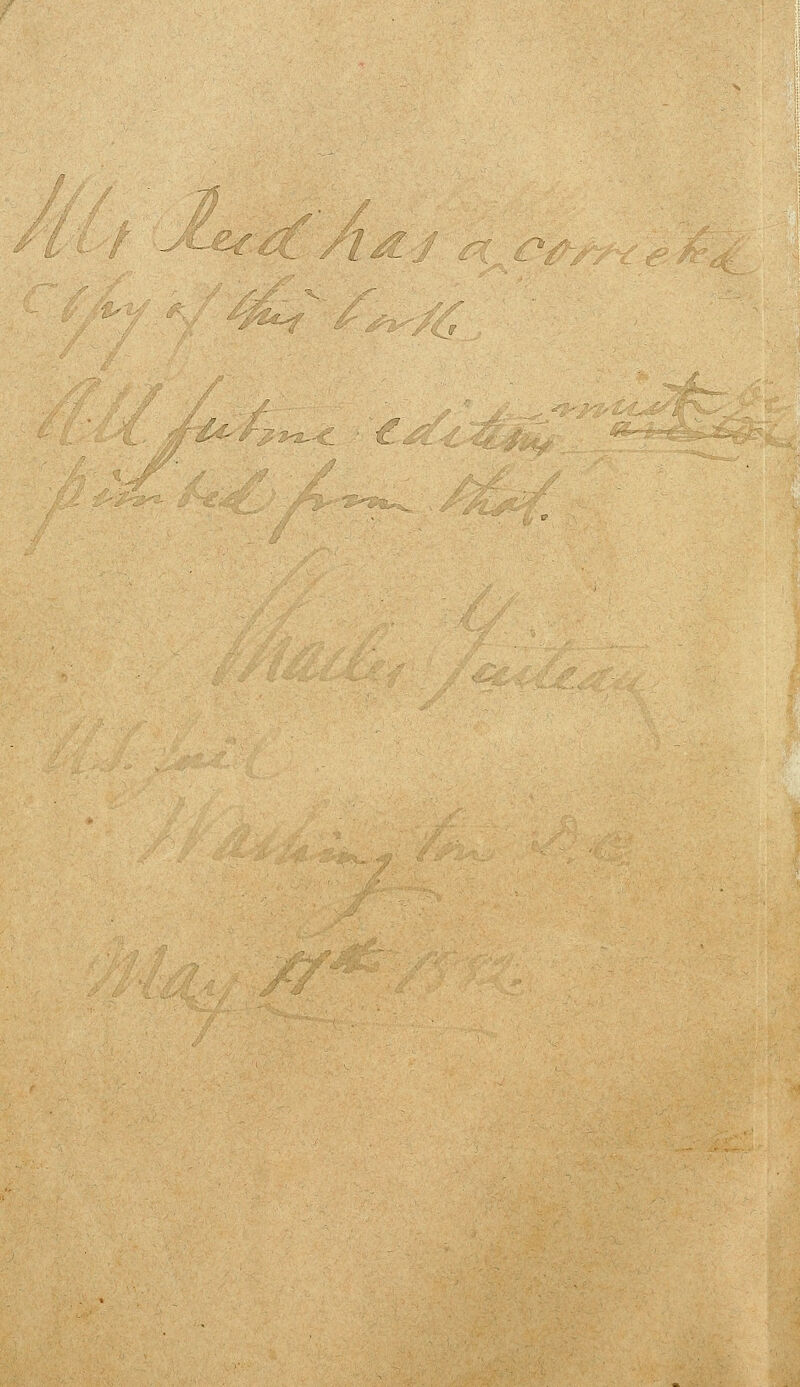 Mr Reed has a corrected
copy of this book.
All future editions must be
printed from that.
Charles Guiteau
U.S. Jail
Washington D.C.
May 17th 1882.